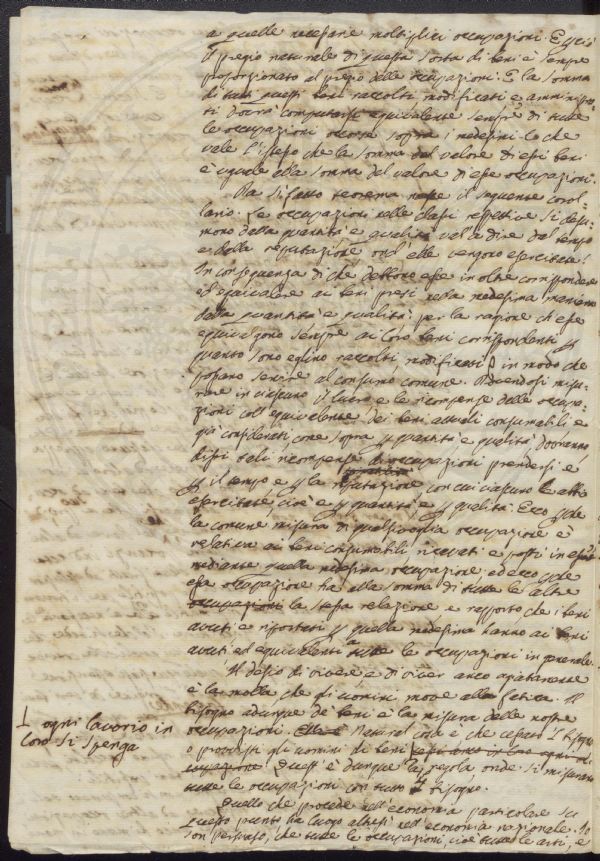 a quelle necessarie moltiplici occupazioni. E perciò
il pregio naturale di questa sorta di beni è sempre
proporzionato al pregio delle occupazioni. E la somma
di tutti questi beni raccolti modificati e amministra-
ti dovrà computarsi equivalente sempre di tutte
le occupazioni occorse sopra i medesimi lo che
vale l'istesso che la somma del valore di essi beni
è uguale alla somma del valore di esse occupazioni.
Da sì fatto teorema nasce il seguente corol-
lario. Le occupazioni nelle classi rispettive si desu-
mono dalla quantità e qualità val'a dire dal tempo
e dalla riputazione ond'elle vengono esercitate.
In conseguenza di che debbono esse inoltre corrispondere
ed equivalere ai beni presi nella medesima maniera
dalla quantità e qualità per la ragione ch'esse
equivalgono sempre ai loro beni corrispondenti
quanto sono eglino raccolti modificati in modo che
possano servire al consumo comune. Dovendosi misu-
rare in ciascuno il lucro e le ricompense delle occupa-
zioni coll'equivalente dei beni attuali consumabili e
già considerati come sopra quantità e qualità dovranno
tali ricompense di occupazioni prendersi e
il tempo e la riputazione con cui ciascuno le abbia
esercitate, cioè quantità e qualità. Ecco
la comune misura di qualsivoglia occupazione è
relativa ai beni consumabili ricevuti e
mediante quella medesima occupazione ed ecco
essa occupazione ha alla somma di tutte le altre
occupazioni la stessa relazione e rapporto che i beni
avuti e riportati quella medesima hanno ai beni
avuti ed equivalenti a tutte le occupazioni in generale.
Il desio di vivere e di viver anco agiatamente
è la molla che gli uomini move alla fatica. Il
bisogno adunque de' beni è la misura delle nostre
occupazioni. Natural cosa è che cessato il bisogno
ogni lavorio in
loro si spenga
o provvisti gli uomini di beni
Quest'è dunque la regola onde si misurano
tutte le occupazioni con tutto il bisogno.
Quello che procede nell'economia particolare su
questo punto ha luogo altresì nell'economia nazionale. Io
son persuaso, che tutte le occupazioni, cioè tutte le arti, e